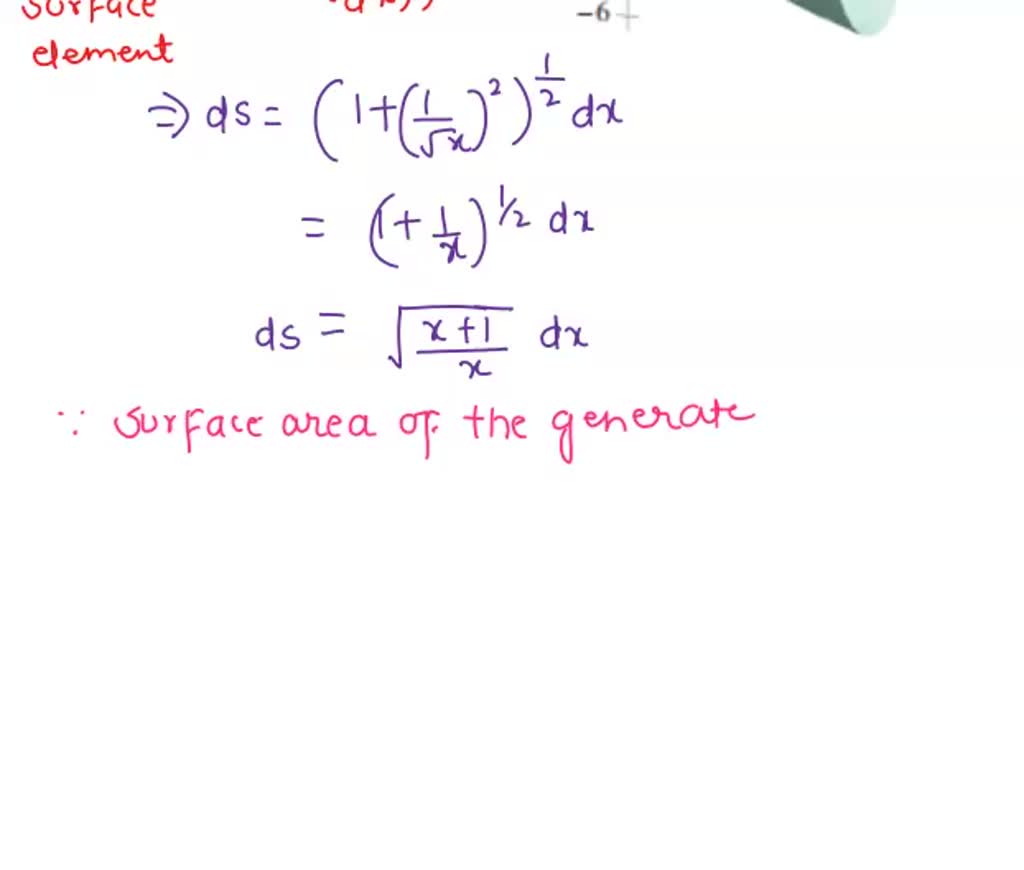 surface
-6
element
⇒ ds = (1+(1/√x)²)^1/2 dx
= (1+ 1/x)^1/2 dx
ds = √((x+1)/x) dx
∵ surface area of the generate